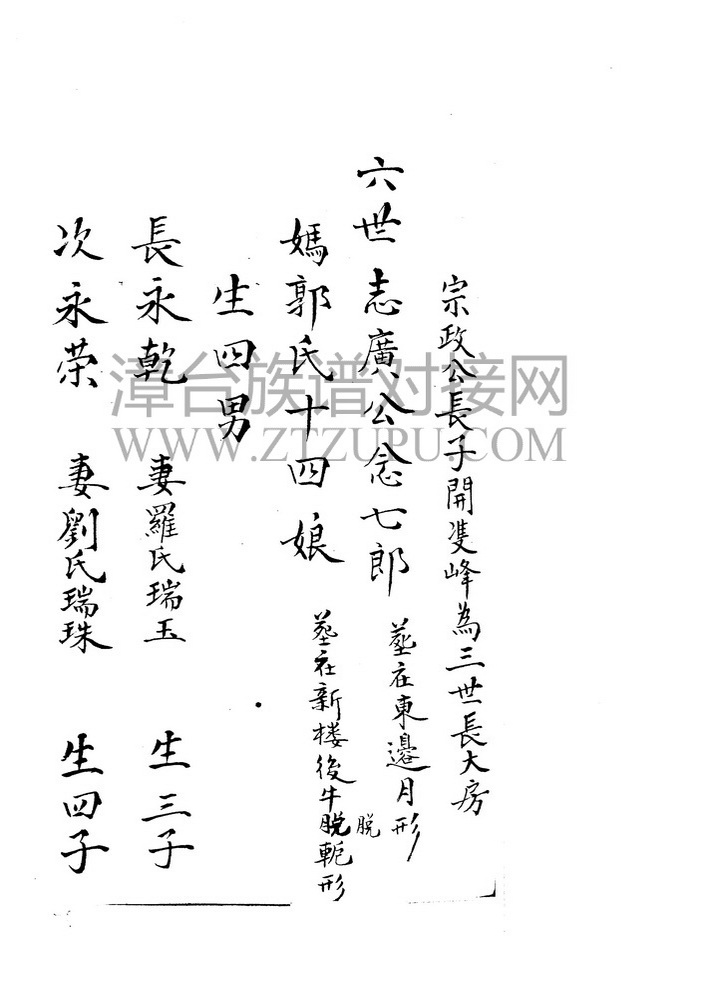 宗政公長子開雙峰為三世長大房
六世志廣公念七郎 墓在東邊月形
媽郭氏十四娘 墓在新楼後牛脫軛形
脫
生四男
長永乾 妻羅氏瑞玉 生三子
次永荣 妻劉氏瑞珠 生四子
漳台族谱对接网
WWW.ZTZUPU.COM